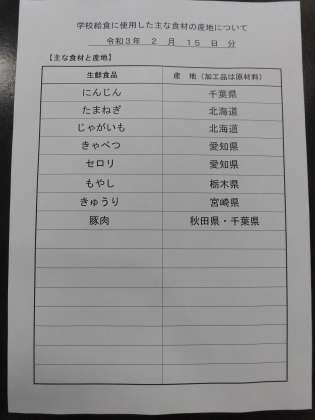 学校給食に使用した主な食材の産地について
令和3年 2 月 15 日 分
【主な食材と産地】
生鮮食品 産 地（加工品は原材料）
にんじん 千葉県
たまねぎ 北海道
じゃがいも 北海道
きゃべつ 愛知県
セロリ 愛知県
もやし 栃木県
きゅうり 宮崎県
豚肉 秋田県・千葉県